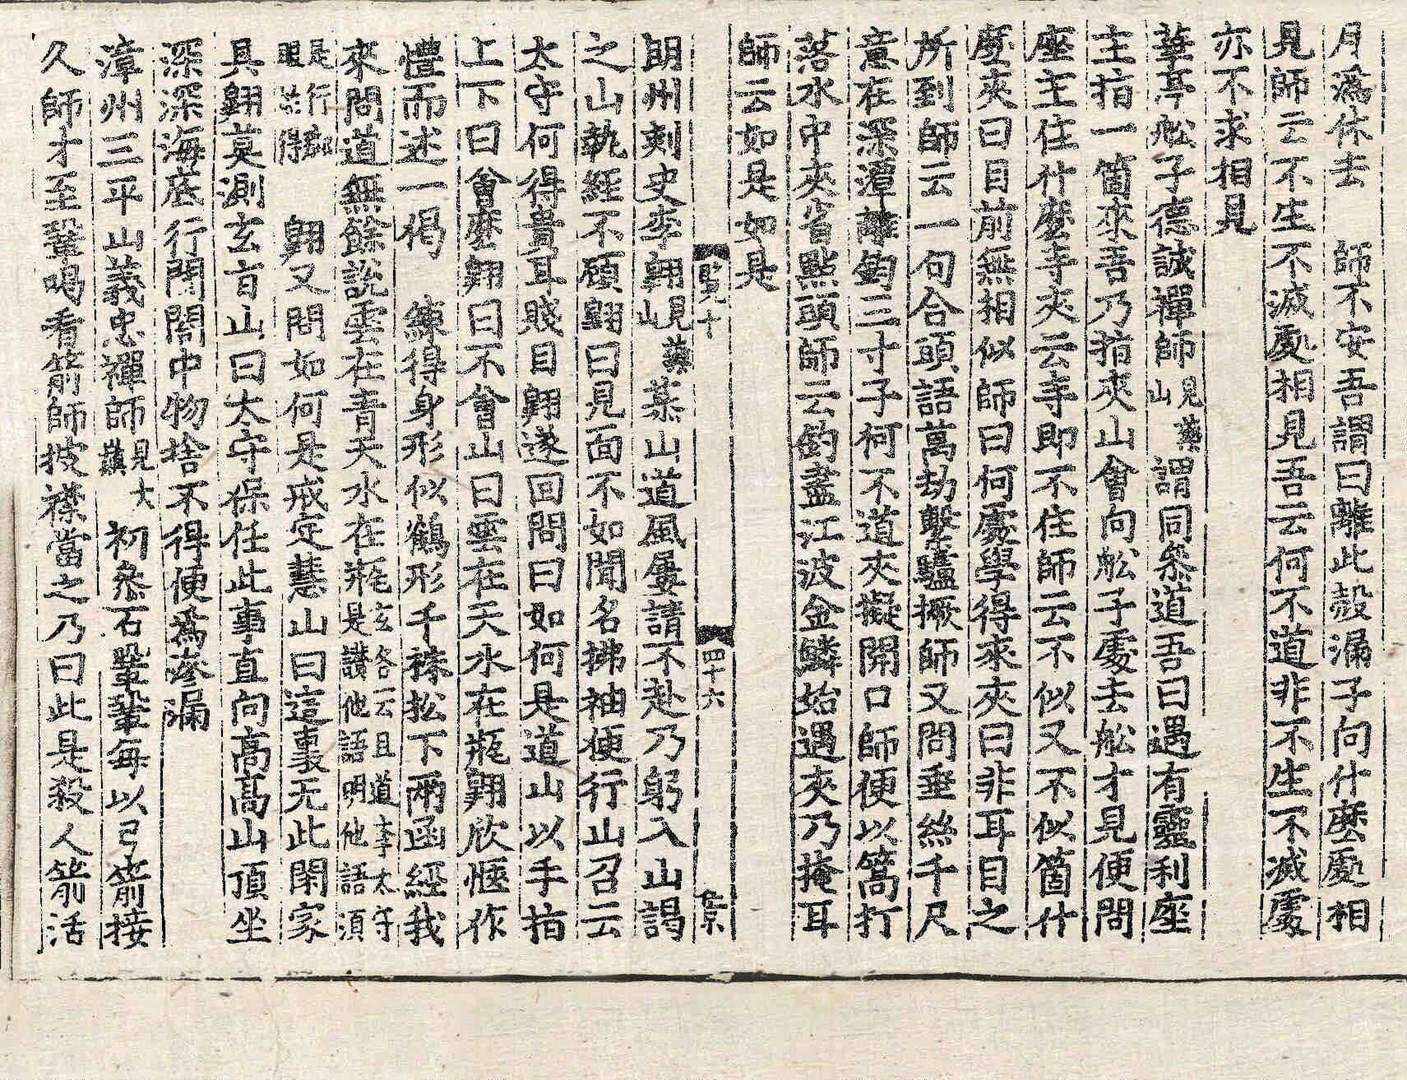 月為休去　師不安吾謂曰離此殼漏子向什麽處相
見師云不生不滅處相見吾云何不道非不生不滅處
亦不求相見
華亭舩子德誠禪師見藥山謂同叅道吾曰遇有靈利座
主指一箇來吾乃指夾山會向舩子處去舩才見便問
座主住什麽寺夾云寺即不住師云不似又不似箇什
麽夾曰目前無相似師曰何處學得來夾曰非耳目之
所到師云一句合頭語萬劫擊驢橛師又問垂絲千尺
意在深潭離鉤三寸子何不道夾擬開口師便以篙打
落水中夾省點頭師云釣盡江波金鱗始遇夾乃掩耳
師云如是如是
覧十　四十六
朗州刺史李翱見藥山慕山道風屢請不赴乃躬入山謁
之山執經不顧翱曰見面不如聞名拂袖便行山召云
太守何得貴耳賤目翱遂回問曰如何是道山以手指
上下曰會麽翱曰不會山曰雲在天水在甁翱欣愜作
禮而述一偈　鍊得身形似鶴形千株松下兩函經我
來問道無餘說雲在青天水在甁玄各云且道李太守是讃他語明他語須
是行脚眼始得　翱又問如何是戒定慧山曰這裏无此閑家
具翱莫測玄旨山曰太守保任此事直向高高山頂坐
深深海底行閨閤中物捨不得便爲滲漏
漳州三平山義忠禪師見大巓初叅石鞏鞏每以弓箭接
久師才至鞏喝看箭師披襟當之乃曰此是殺人箭活